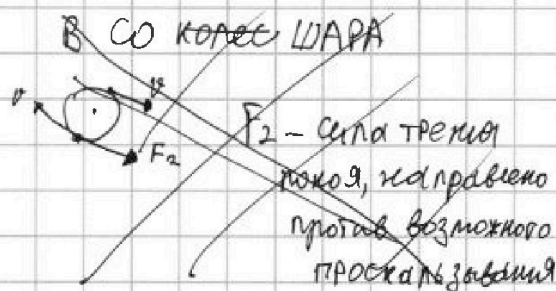 В СО колес ШАРА
v
v
F₂
F₂ - сила трения
покоя, направлено
против возможного
проскальзывания